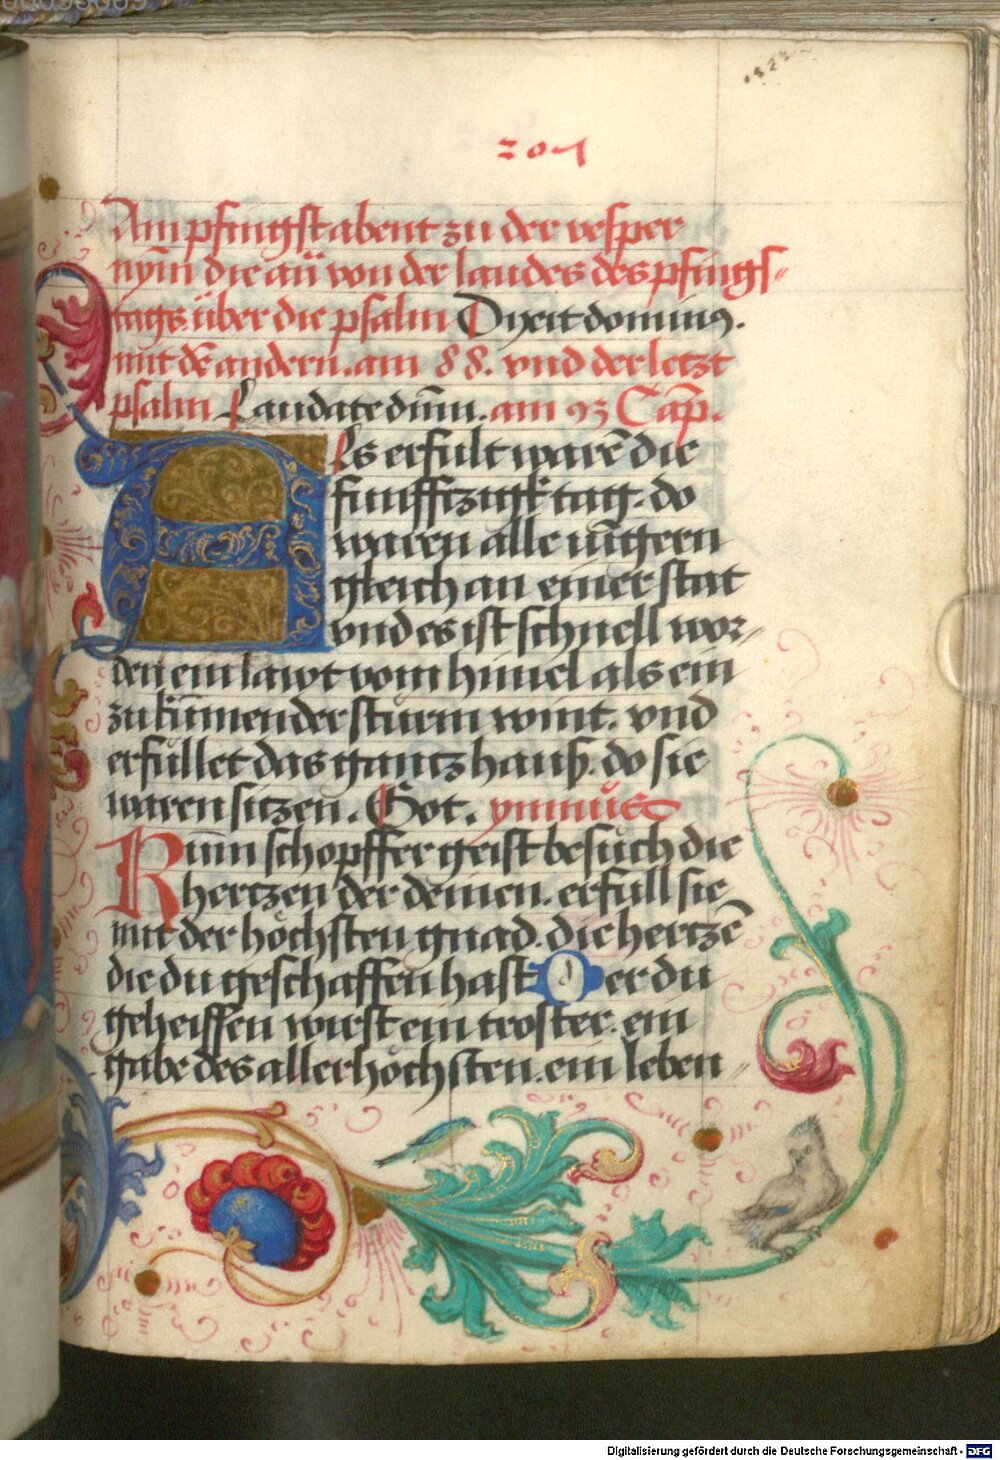 201
Am pfingstabent zu der vesper
nym die añ von der laudes des pfings-
tags über die psalm Dixit dominꝰ.
mit dē andern. am 88. vnd der letzt
psalm Laudate dūm. am 93 Cap̄.
Als erfult warē die
funffczigk tag. do
waren alle iūgern
gleich an einer stat
vnd es ist schnell wor-
den ein lawt vom himel als ein
zu kūmender sturm wint. vnd
erfullet das gantz hauß. do sie
waren sitzen. Got. ymnus
Kum schopffer geist besuch die
hertzen der deinen. erfull sie
mit der höchsten gnad. die hertzē
die du geschaffen hast Der du
geheissen wirst ein troster. ein
gabe des allerhöchsten. ein leben
Digitalisierung gefördert durch die Deutsche Forschungsgemeinschaft - DFG